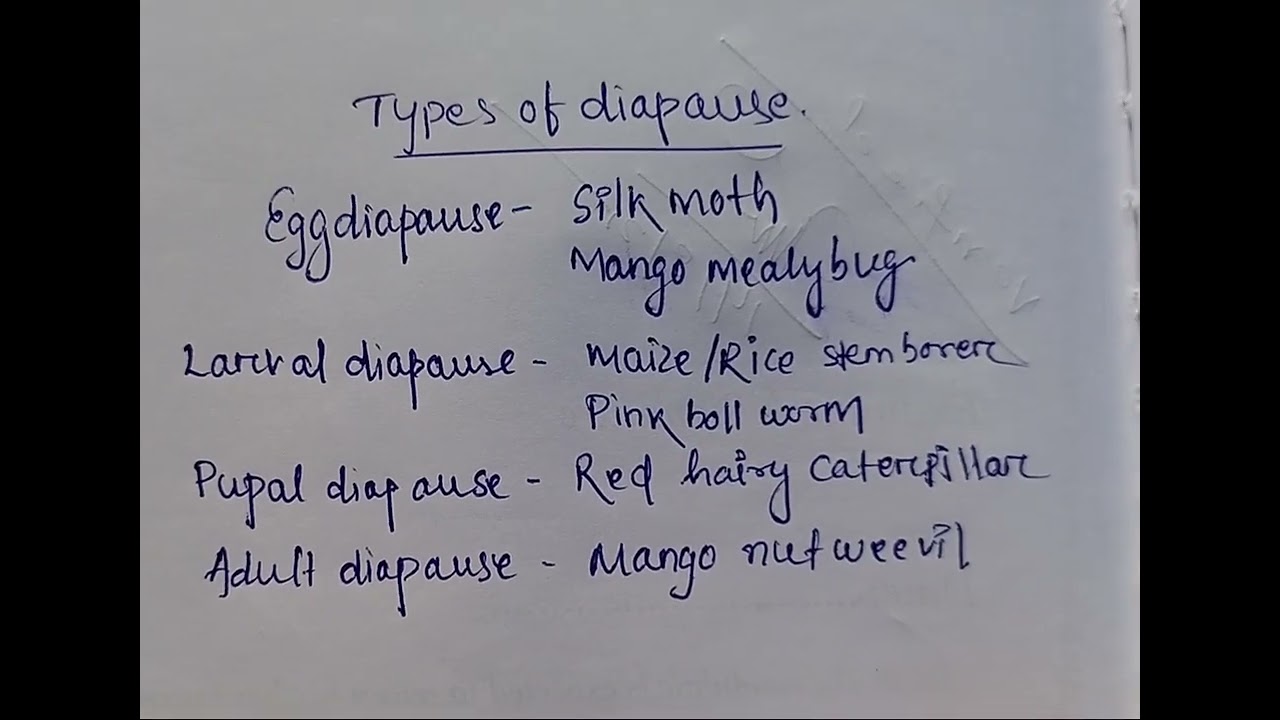 Types of diapause.
Egg diapause - Silk moth
Mango mealybug
Larval diapause - Maize/Rice stem borer
Pink boll worm
Pupal diapause - Red hairy caterpillar
Adult diapause - Mango nut weevil